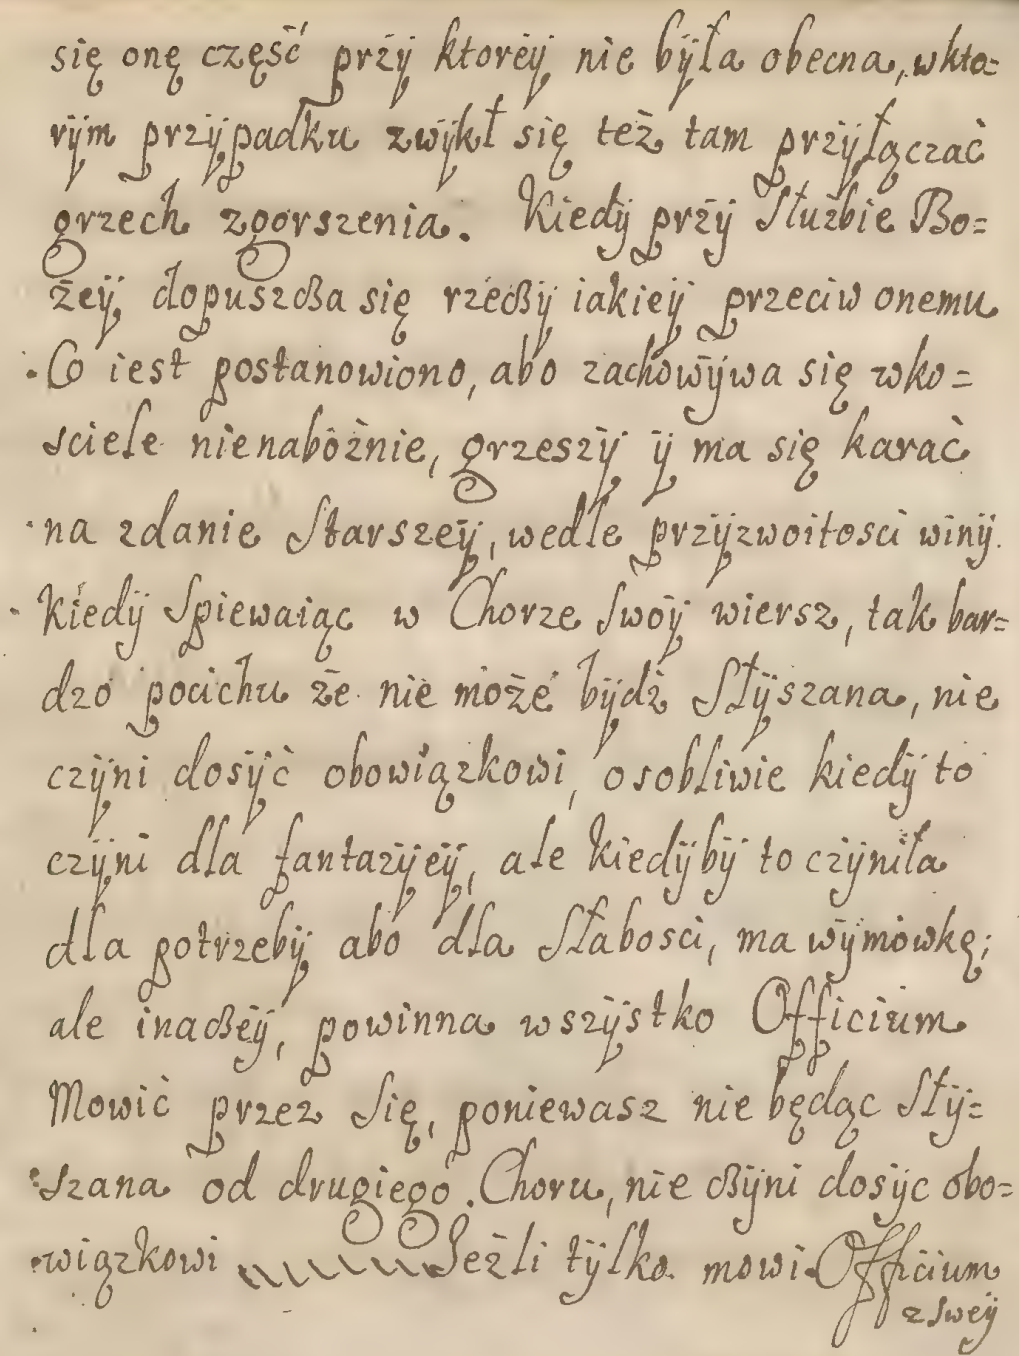 się onę część przÿ ktoreÿ nie bÿła obecna, wkto=
rÿm przÿpadku zwÿkł się też tam przÿłączać
grzech zgorszenia. Kiedÿ przÿ Służbie Bo=
żeÿ dopuszcza się rzeczÿ iakieÿ przeciw onemu
Co iest postanowiono, abo zachowÿwa się wko=
sciele nienabożnie, grzeszÿ ÿ ma się karać
na zdanie Starszeÿ, wedle przÿzwoitosci winÿ.
Kiedÿ Spiewaiąc w Chorze Swoÿ wiersz, tak bar=
dzo pocichu że nie może bÿdź Słÿszana, nie
czÿni dosÿć obowiązkowi, osobliwie kiedÿ to
czÿni dla fantazÿeÿ, ale kiedÿbÿ to czÿniła
dla potrzebÿ abo dla Słabosci, ma wÿmowkę;
ale inaczeÿ, powinna wszÿstko Officium
Mowić przez Się, poniewasz nie będąc Słÿ=
Szana od drugiego Choru, nie czÿni dosÿc obo=
wiązkowi Jeżli tÿlko mowi Officium
zSweÿ